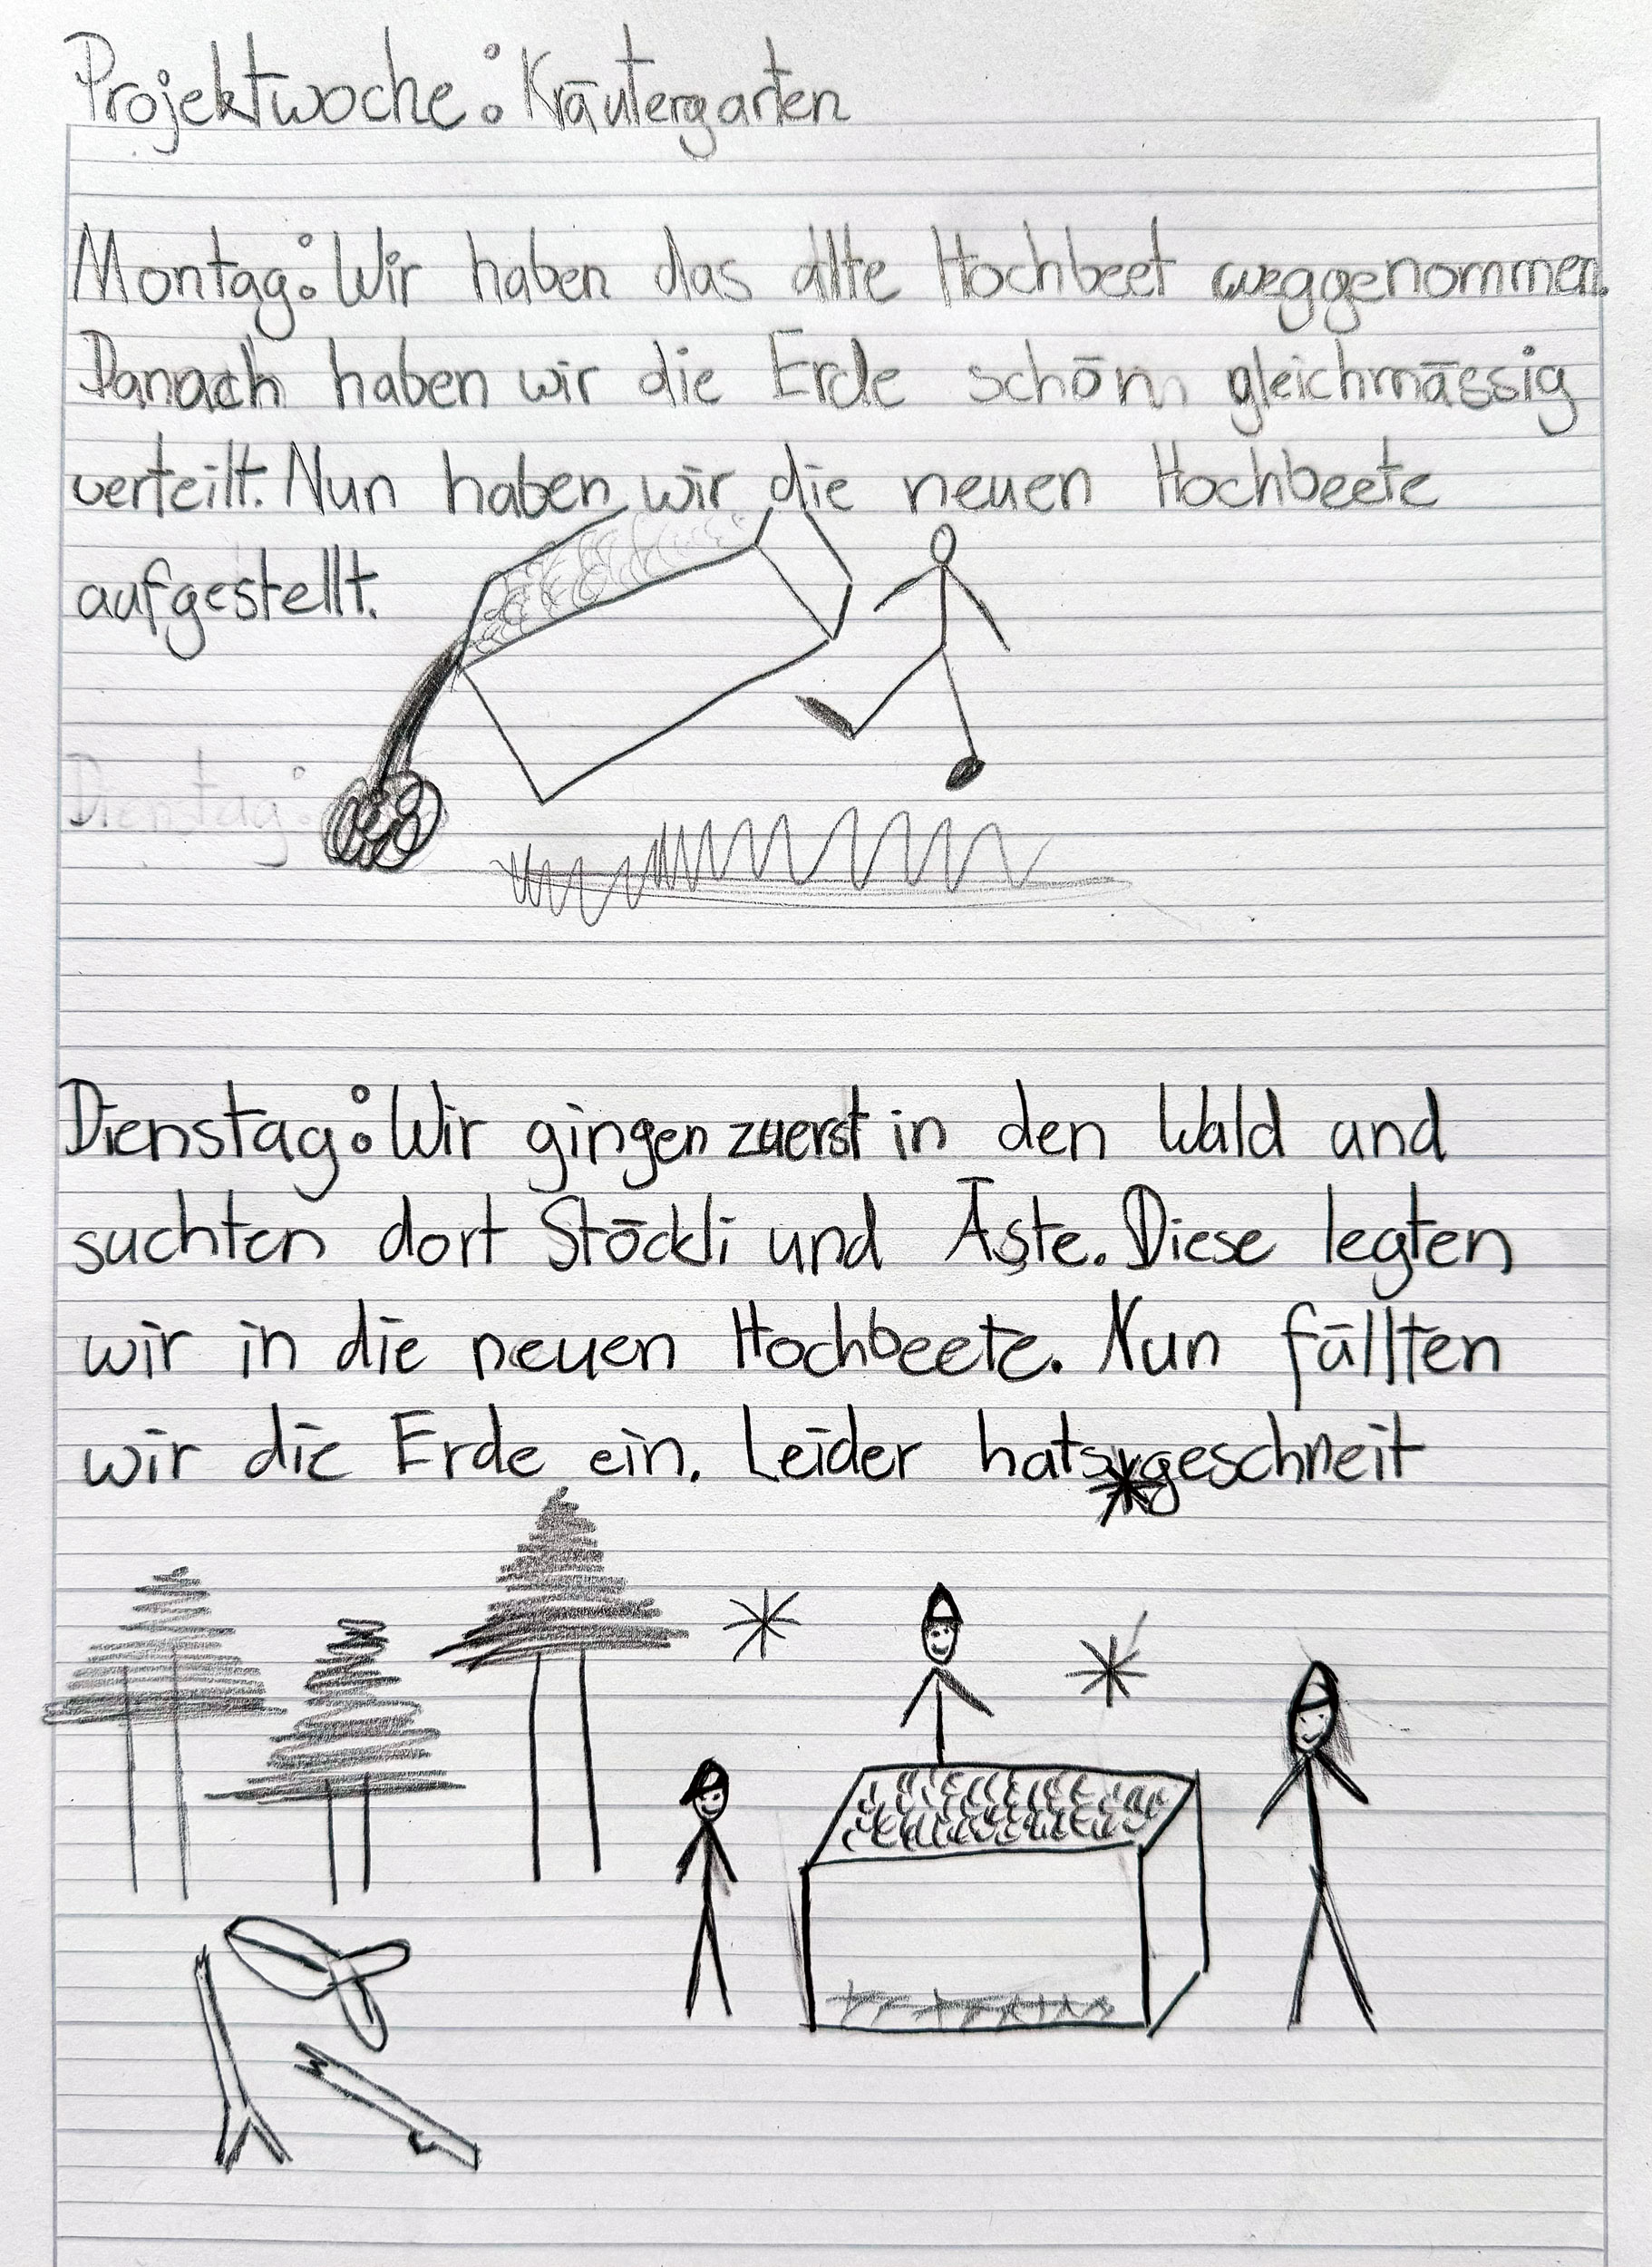 Projektwoche: Kräutergarten
Montag: Wir haben das alte Hochbeet weggenommen.
Danach haben wir die Erde schön gleichmässig
verteilt. Nun haben wir die neuen Hochbeete
aufgestellt.
Dientag:
Dienstag: Wir gingen zuerst in den Wald und
suchten dort Stöckli und Äste. Diese legten
wir in die neuen Hochbeete. Nun füllten
wir die Erde ein. Leider hats geschneit